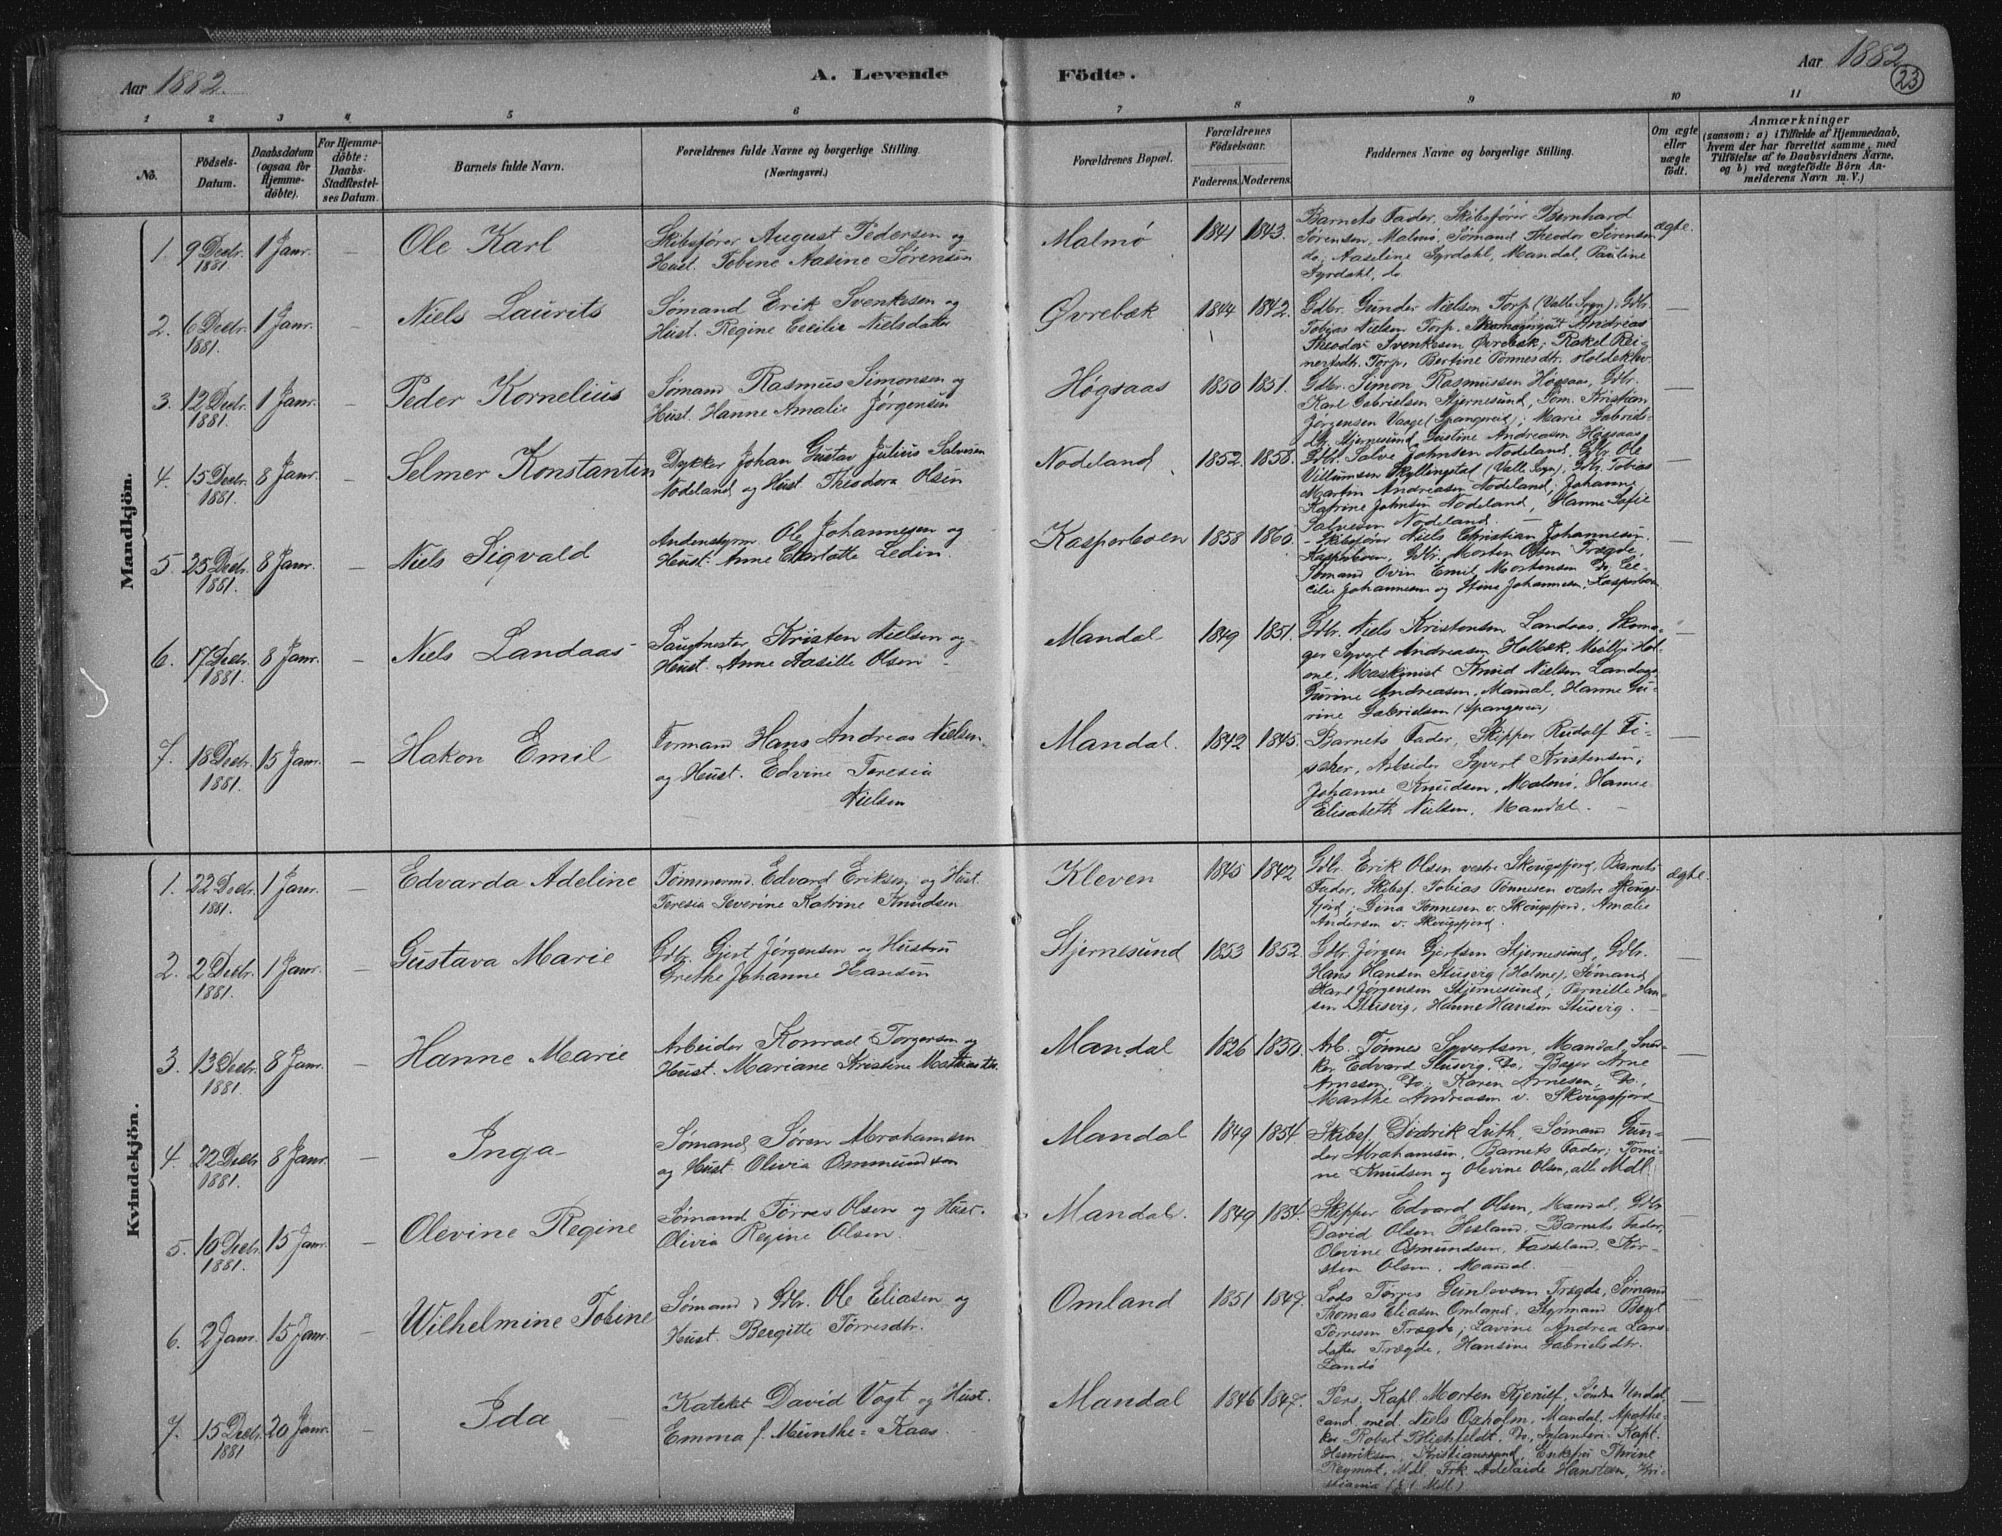 Aar 1882.
A. Levende Födte.
Aar 1882
23
1 2 3 4 5 6 7 8 9 10 11
No.
Födsels-Datum.
Daabsdatum (ogsaa for Hjemmedöbte).
For Hjemmedöbte: Daabs-Stadfæstelses Datum.
Barnets fulde Navn.
Forældrenes fulde Navne og borgerlige Stilling. (Næringsvei.)
Forældrenes Bopæl.
Forældrenes Födselsaar.
Faderens. Moderens.
Faddernes Navne og borgerlige Stilling.
Om ægte eller uægte født.
Anmærkninger
(saasom: a) i Tilfælde af Hjemmedaab, hvem der har forrettet samme, med Tilföielse af to Daabsvidners Navne, og b) ved uægtefödte Börn Anmelderens Navn m. V.)
Mandkjön.
1. 9 Decbr. 1881. 1 Janr. — Ole Karl
Skibsfører August Pedersen og
Hust. Tobine Aasine Sørensen
Malmø 1841 1843.
Barnets Fader, Skibsfører Bernhard
Sørensen, Malmø, Sømand Theodor Sørensen
do; Aaseline Syrdahl, Mandal, Pauline
Syrdahl, do
ægte.
2. 6 Decbr. 1881. 1 Janr. — Niels Laurits
Sømand Erik Svenkesen og
Hust. Regine Cecilie Nielsdatter
Øvrebæk 1844 1842.
Gdbr. Gunder Nielsen Torp (Valle Sogn), Gdbr.
Tobias Nielsen Torp, Andreas
Theodor Svenkesen Øvrebæk; Rakel Rei-
nertsdtr. Torp, Bertine Tønnesdtr.
—
3. 12 Decbr. 1881. 1 Janr. — Peder Kornelius
Sømand Rasmus Simonsen og
Hust. Hanne Amalie Jørgensen
Høgsaas 1850 1851.
Gdbr. Simon Rasmussen Høgsaas, Gdbr.
Karl Gabrielsen Stjernesund, Søm. Kristian
Jørgensen Vaage (Spangreid); Marie Gabriels-
dtr. Stjernesund, Gustine Andreasen Høgsaas
—
4. 15 Decbr. 1881. 8 Janr. — Selmer Konstantin
Dykker Johan Gustav Julius Salvesen
Nodeland og Hust. Theodora Olsen
Nodeland 1852. 1858.
Gdbr. Salve Johnsen Nodeland, Gdbr. Ole
Villumsen Skyllingstad (Valle Sogn), Gdbr. Tobias
Martin Andreasen Nodeland; Johanne
Katrine Johnsen Nodeland, Hanne Sofie
Salvesen Nodeland
—
5. 25 Decbr. 1881. 8 Janr. — Niels Sigvald
Andenstyrm. Ole Johannesen og
Hust. Anne Charlotte Ledin.
Kasperboen 1858 1860.
Skibsfører Niels Christian Johannesen
Kasperboen, Gdbr. Morten Olsen Trægde,
Sømand Ovin Emil Mortensen Do; Ce-
cilie Johannesen og Stine Johannesen, Kasperboen
—
6. 17 Decbr. 1881. 8 Janr. — Niels Landaas
Saugmester Kristen Nielsen og
Hust. Anne Aasille Olsen
Mandal 1849 1851.
Gdbr. Niels Kristensen Landaas, Skoma-
ger Syvert Andreasen Holbæk, Hol-
me, Maskinist Knud Nielsen Landaas,
Gurine Andreasen, Mandal, Hanne Gu-
rine Gabrielsen (Spangereid)
—
7. 18 Decbr. 1881. 15 Janr. — Hakon Emil
Formand Hans Andreas Nielsen
og Hust. Edvine Teresia
Nielsen
Mandal. 1842 1845.
Barnets Fader, Skipper Rudolf Fi-
scher, Arbeider Syvert Kristensen;
Johanne Knudsen, Malmø, Hanne
Elisabeth Nielsen, Mandal.
—
Kvindekjön.
1. 22 Decbr. 1881. 1 Janr. — Edvarda Adeline
Tømmermd. Edvard Eriksen og Hust.
Teresia Severine Katrine Knudsen
Kleven 1845 1842
Gdbr. Erik Olsen vestre Skougsfjord, Barnets
Fader, Skibsf. Tobias Tønnesen vestre Skougs-
fjord; Gina Tønnesen v. Skougsfjord, Amalie
Andersen v. Skougsfjord.
ægte.
2. 2 Decbr. 1881. 1 Janr. — Gustava Marie
Gdbr. Gjert Jørgensen og Hustru
Grethe Johanne Hansen
Stjernesund 1853 1852.
Gdbr. Jørgen Gjertsen Stjernesund, Gdbr.
Hans Hansen Stusvig (Holme), Sømand
Karl Jørgensen Stjernesund; Pernille Han-
sen Stusvig, Hanne Hansen Stusvig.
—
3. 13 Decbr. 1881. 8 Janr. — Hanne Marie
Arbeider Konrad Torgersen og
Hust. Mariane Kristine Mathiasdtr.
Mandal 1826 1850.
Arb. Tønnes Syvertsen, Mandal, Sned-
ker Edvard Stusvig, Do; Bager Arne
Arnesen, Do; Karen Arnesen, Do,
Marthe Andreasen v. Skougsfjord
—
4. 22 Decbr. 1881. 8 Janr. — Inga
Sømand Søren Abrahamsen
og Hust. Olivia Ommundsen
Mandal 1849 1854.
Skibsf. Didrik Luth, Sømand Gun-
der Abrahamsen, Barnets Fader; Tomi-
ne Knudsen og Olevine Olsen, alle Mdl.
—
5. 10 Decbr. 1881. 15 Janr. — Olevine Regine
Sømand Tørres Olsen og Hust.
Olivia Regine Olsen.
Mandal. 1849 1854.
Skipper Edvard Olsen, Mandal, Gdbr
David Olsen Hesland, Barnets Fader,
Olevine Osmundsen, Fasseland, Kir-
sten Olsen, Mandal.
—
6. 2 Janr. 15 Janr. — Wilhelmine Tobine
Sømand & Gdbr. Ole Eliasen og
Hust. Bergitte Tørresdtr.
Omland 1851 1847.
Lods Tørres Gunlovsen Trægde, Sømand
Thomas Eliasen Omland, Styrmand Bent
Tørresen Trægde; Lavine Andrea Lars-
datter Trægde, Hansine Gabrielsdtr.
Landø
—
7. 15 Decbr. 1881 20 Janr. — Ida
Kateket David Vogt og Hust.
Emma f. Munthe-Kaas.
Mandal 1846 1847.
Pers. Kapl. Morten Kjerulf, Søndre Undal
cand. med. Niels Oxholm, Mandal, Apothe-
ker Robert Bichfeldt, Do, Infanteri-Kapt.
Henriksen, Kristianssund, Enkefru Thrine
Mdl., Frk. Adelaide Hansteen, Kri-
stiania (f. i Mdl.)
—